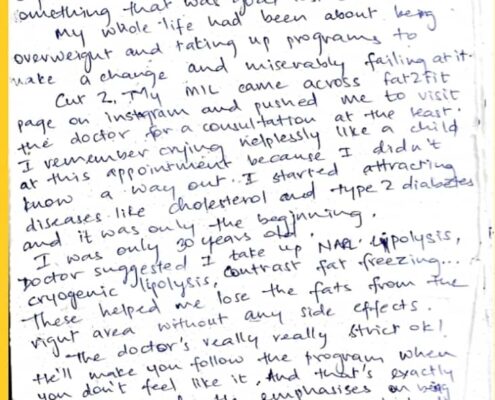 something that was your
My whole life had been about being
overweight and taking up programs to
make a change and miserably failing at it.
Cut 2, My MIL came across fat2fit
page on instagram and pushed me to visit
the doctor for a consultation at the least.
I remember crying helplessly like a child
at this appointment because I didn't
know a way out. I started attracting
diseases like cholesterol and type 2 diabetes
and it was only the beginning.
I was only 30 years old.
Doctor suggested I take up lipolysis,
cryogenic lipolysis, contrast fat freezing...
These helped me lose the fats from the
right area without any side effects.
The doctor's really really strict ok!
He'll make you follow the program when
you don't feel like it. And that's exactly
emphasises on being